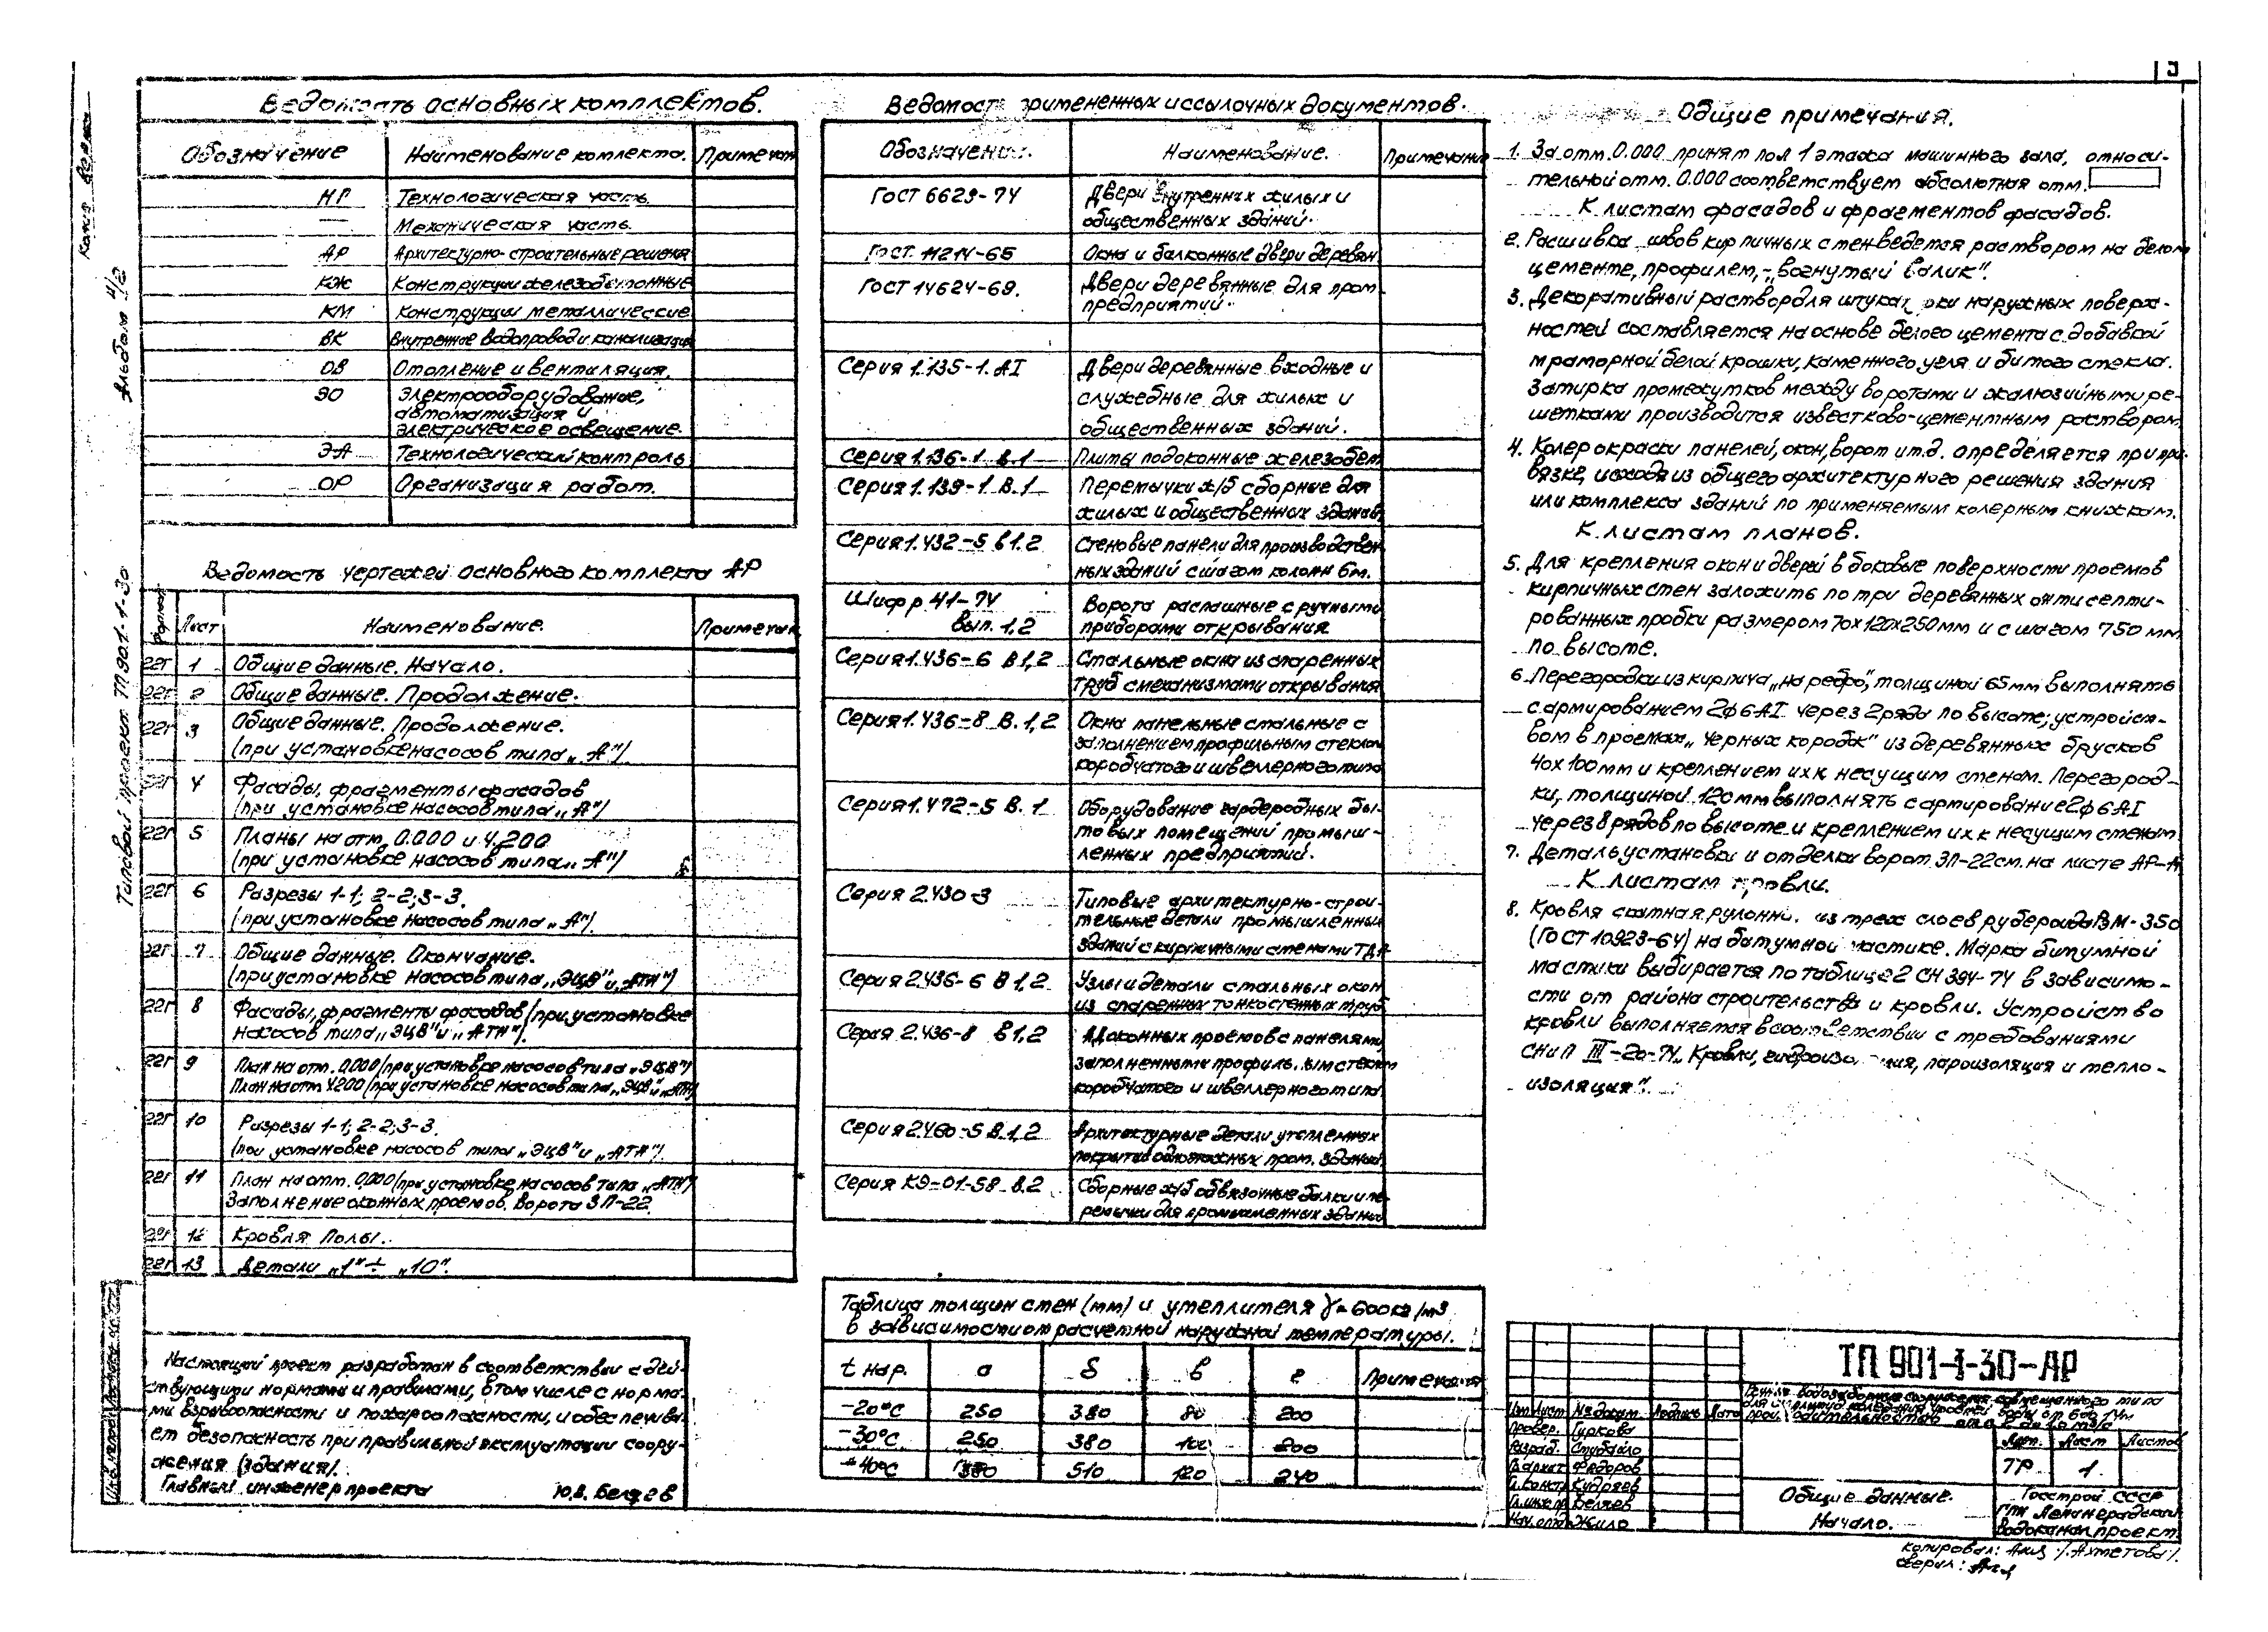 Ведомость основных комплектов.
Обозначение Наименование комплекта. Примечан
НР Технологическая часть.
— Механическая часть.
АР Архитектурно-строительные решения
КЖ Конструкции железобетонные
КМ Конструкции металлические
ВК Внутренние водопровод и канализация
ОВ Отопление и вентиляция.
ЭО Электрооборудование,
автоматизация и
электрическое освещение.
ЭА Технологический контроль
ОР Организация работ.
Ведомость чертежей основного комплекта АР
Формат Лист Наименование. Примечан
22Г 1 Общие данные. Начало.
22Г 2 Общие данные. Продолжение.
22Г 3 Общие данные. Продолжение.
(при установке насосов типа „А")
22Г 4 Фасады, фрагменты фасадов
(при установке насосов типа „А")
22Г 5 Планы на отм. 0.000 и 4.200
(при установке насосов типа „А")
22Г 6 Разрезы 1-1; 2-2; 3-3.
(при установке насосов типа „А").
22Г 7 Общие данные. Окончание.
(при установке насосов типа „ЭЦВ" и „АТН")
22Г 8 Фасады, фрагменты фасадов (при установке
насосов типа „ЭЦВ" и „АТН").
22Г 9 План на отм. 0.000 (при установке насосов типа „ЭЦВ")
План на отм. 4.200 (при установке насосов типа „ЭЦВ" и „АТН")
22Г 10 Разрезы 1-1; 2-2; 3-3.
(при установке насосов типа „ЭЦВ" и „АТН").
22Г 11 План на отм. 0.000 (при установке насосов типа „АТН")
Заполнение оконных проемов. Ворота ЗП-22.
22Г 12 Кровля Полы.
22Г 13 Детали „1" ÷ „10".
Настоящий проект разработан в соответствии с дей-
ствующими нормами и правилами, в том числе с норма-
ми взрывоопасности и пожароопасности, и обеспечива-
ет безопасность при правильной эксплуатации соору-
жения (здания).
Главный инженер проекта Ю.В. Беляев
Ведомость примененных и ссылочных документов.
Обозначение. Наименование. Примечание
ГОСТ 6629-74 Двери внутренних жилых и
общественных зданий.
ГОСТ 11214-65 Окна и балконные двери деревян.
ГОСТ 14624-69. Двери деревянные для пром.
предприятий.
Серия 1.135-1. АI Двери деревянные входные и
служебные для жилых и
общественных зданий.
Серия 1.136-1 В.1 Плиты подоконные железобет
Серия 1.139-1 В.1 Перемычки ж/б сборные для
жилых и общественных зданий.
Серия 1.432-5 в1.2 Стеновые панели для производствен
ных зданий с шагом колонн 6м.
Шифр 41-74 Ворота распашные с ручными
вып. 1,2 приборами открывания
Серия 1.436-6 В1,2 Стальные окна из спаренных
труб с механизмами открывания
Серия 1.436-8 В.1,2 Окна панельные стальные с
заполнением профильным стеклом
коробчатого и швеллерного типа
Серия 1.472-5 В.1 Оборудование гардеробных бы-
товых помещений промыш-
ленных предприятий.
Серия 2.430-3 Типовые архитектурно-строи-
тельные детали промышленных
зданий с кирпичными стенами ТДА
Серия 2.436-6 В 1,2 Узлы и детали стальных окон
из спаренных тонкостенных труб
Серия 2.436-8 В1,2 оконных проемов с панелями
заполненными профиль. ым стеклом
коробчатого и швеллерного типа
Серия 2.460-5 В.1,2 Архитектурные детали утепленных
покрытий одноэтажных пром. зданий.
Серия КЭ-01-58 в.2 Сборные ж/б обвязочные балки и пе-
ремычки для промышленных зданий
Таблица толщин стен (мм) и утеплителя γ=600кг/м3
в зависимости от расчетной наружной температуры.
t нар. а б в г Примечания
-20°С 250 380 80 200
-30°С 250 380 100 200
-40°С 380 510 120 240
Общие примечания.
1. За отм. 0.000 принят пол 1 этажа машинного зала, относи-
тельной отм. 0.000 соответствует абсолютная отм.
К листам фасадов и фрагментов фасадов.
2. Расшивка швов кирпичных стен ведется раствором на белом
цементе, профилем, - „вогнутый валик".
3. Декоративный раствор для штукат рки наружных поверх-
ностей составляется на основе белого цемента с добавкой
мраморной белой крошки, каменного угля и битого стекла.
Затирка промежутков между воротами и жалюзийными ре-
шетками производится известково-цементным раствором.
4. Колер окраски панелей, окон, ворот и т.д. определяется при при-
вязке, исходя из общего архитектурного решения здания
или комплекса зданий по применяемым колерным книжкам.
К листам планов.
5. Для крепления окон и дверей в боковые поверхности проемов
кирпичных стен заложить по три деревянных антисепти-
рованных пробки размером 70х120х250мм и с шагом 750 мм
по высоте.
6. Перегородки из кирпича „на ребро", толщиной 65мм выполнять
с армированием 2ф6АI через 2 ряда по высоте; устройст-
вом в проемах „черных коробок" из деревянных брусков
40х100мм и креплением их к несущим стенам. Перегород-
ки, толщиной 120мм выполнять с армирование 2ф6АI
через 8 рядов по высоте и креплением их к несущим стенам
7. Деталь установки и отделки ворот ЗП-22 см. на листе АР-11
К листам кровли.
8. Кровля скатная, рулонн. из трех слоев рубероида РМ-350
(ГОСТ 10923-64) на битумной мастике. Марка битумной
мастики выбирается по таблице 2 СН 394-74 в зависимо-
сти от района строительства и кровли. Устройство
кровли выполняется в соответствии с требованиями
СНиП III-20-74 „Кровли, гидроизо. ция, пароизоляция и тепло-
изоляция".
ТП 901-1-30-АР
водозаборные сооружения совмещенного типа
для амплитуд колебания уровней воды от 6 до 14м
производительностью от до 1.0 м3/с
Изм Лист № докум. Подпись Дата
Провер. Гуркова
Разраб.
Гл.архит Федоров
Гл.конст. Кудряев
Гл.инж.п Беляев
Нач.отд Жило
Лит. Лист Листов
ТР 1
Общие данные.
Начало.
Госстрой СССР
ГПИ Ленинградский
Водоканалпроект.
Копировал: /Ахметова/.
Сверил:
Типовой проект ТП 901-1-30
Альбом